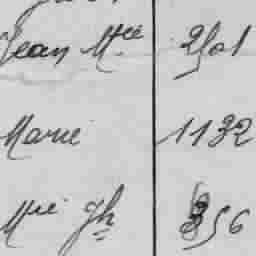 Jean Mce 2501
Marie 1132
Mie Jh 356